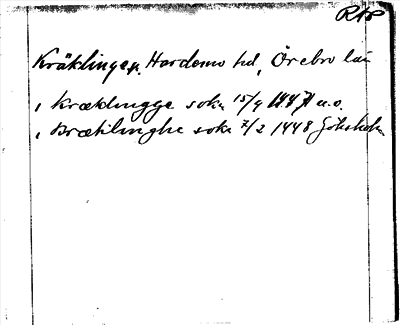 RAP
Kräklinge sn. Hardemo hd, Örebro län
i Kræklingge sokn 15/9 1447 u.o.
i Brækilinghe sokn 7/2 1448 Göksholm